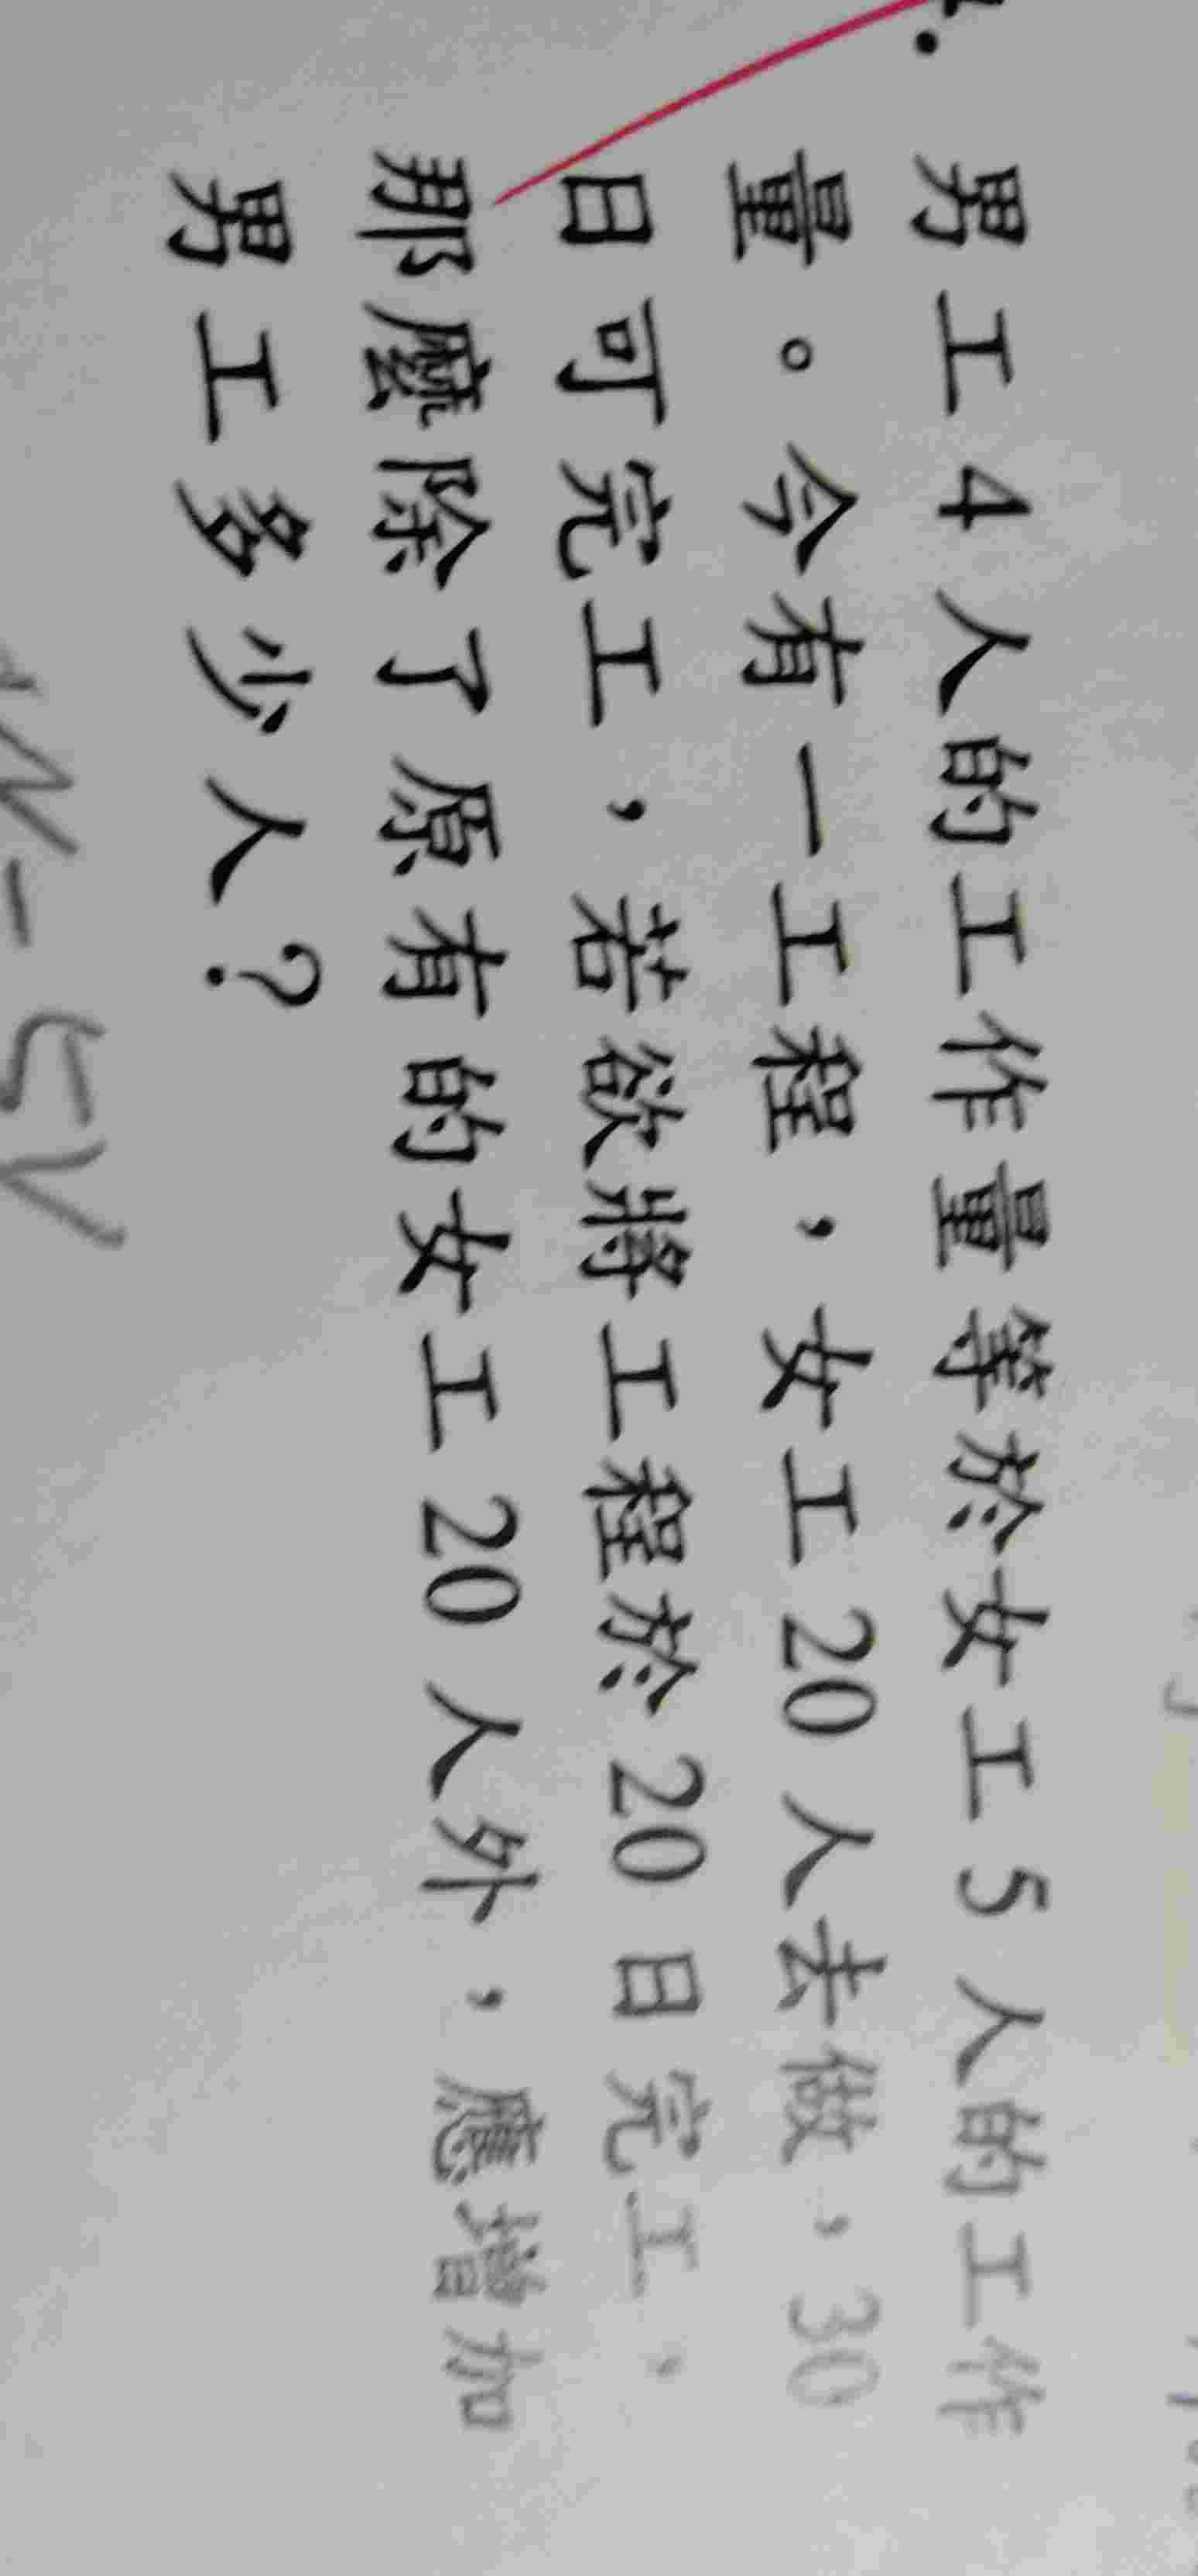 男工4人的工作量等於女工5人的工作
量。今有一工程，女工20人去做，30
日可完工，若欲將工程於20日完工，
那麼除了原有的女工20人外，應增加
男工多少人？